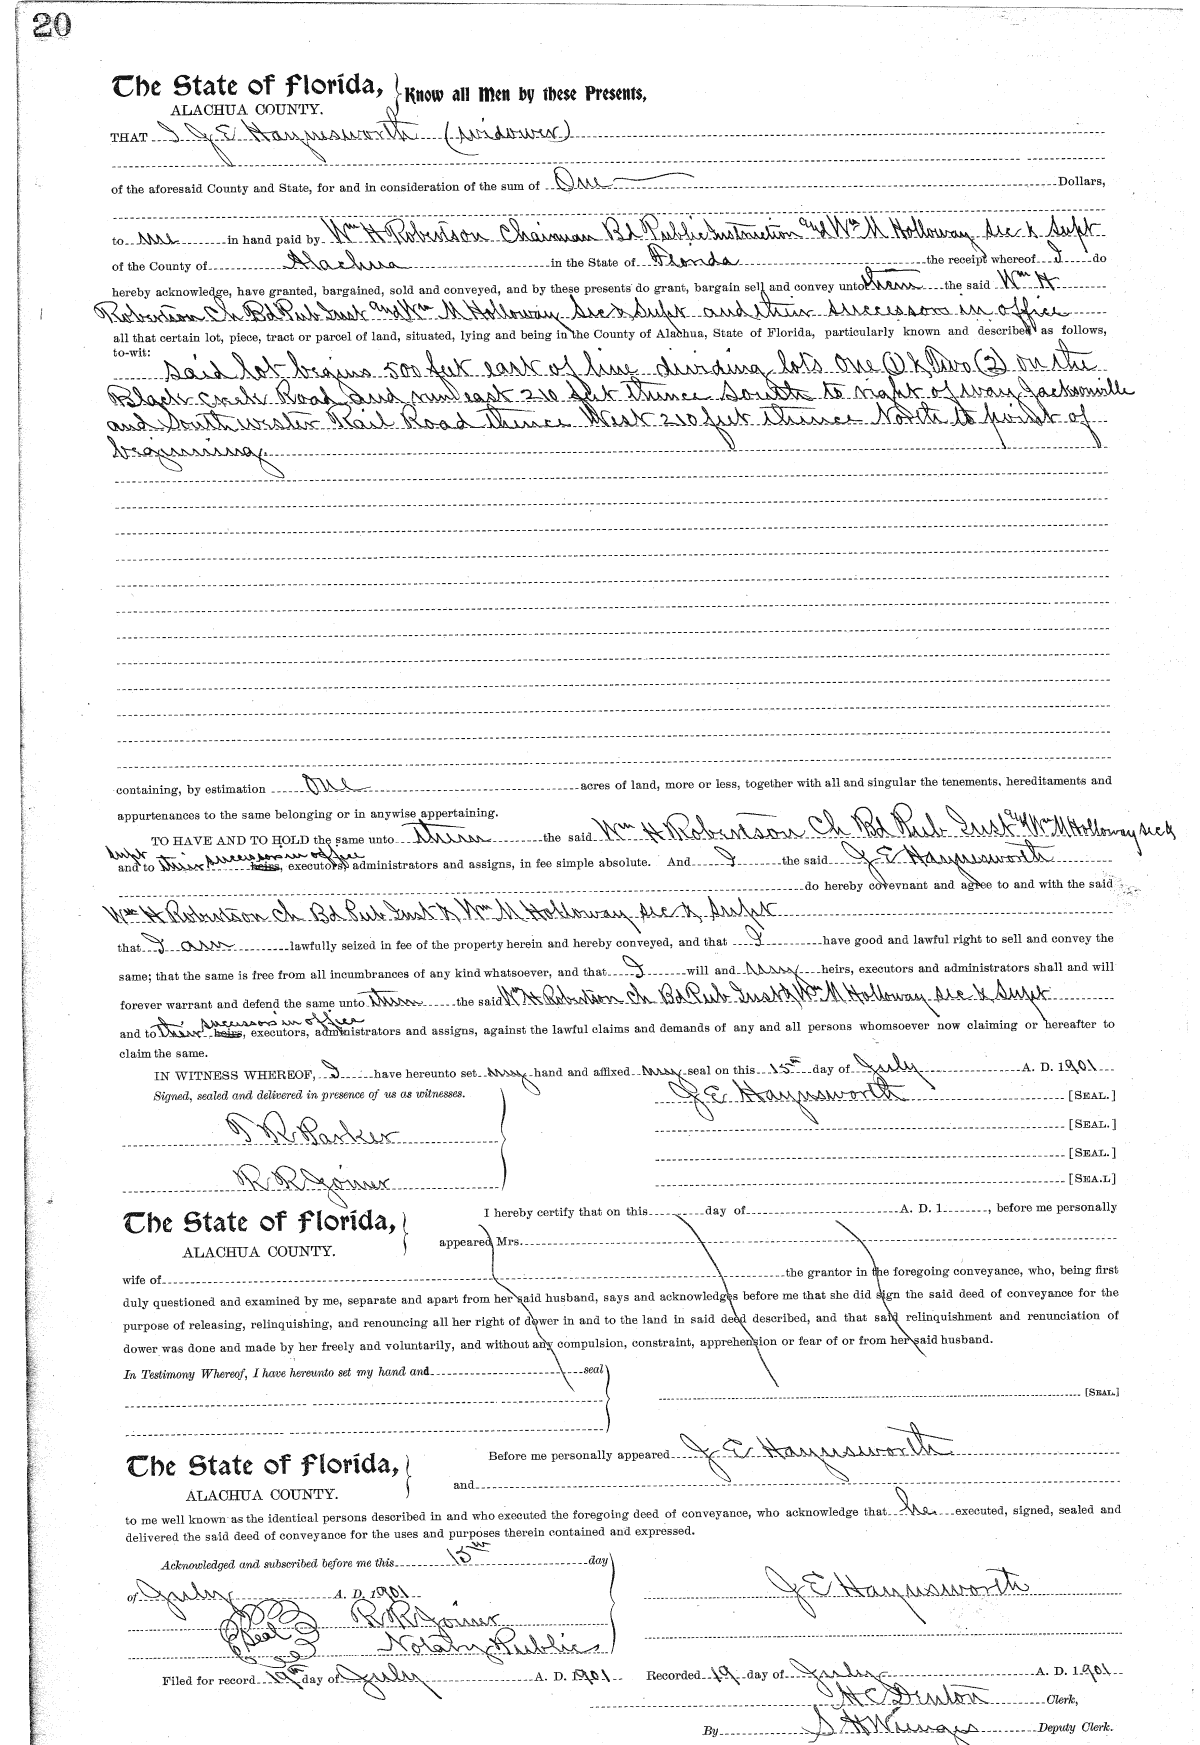 20
The State of Florida, Know all Men by these Presents,
ALACHUA COUNTY.
THAT I J E Haynesworth (widower)
of the aforesaid County and State, for and in consideration of the sum of One Dollars,
to me in hand paid by Wm H Robertson Chairman Bd Public Instruction and Wm M Holloway Sec & Supt
of the County of Alachua in the State of Florida the receipt whereof I do
hereby acknowledge, have granted, bargained, sold and conveyed, and by these presents do grant, bargain sell and convey unto them the said Wm H
Robertson Ch Bd Pub Inst and Wm M Holloway Sec & Supt and their successors in office
all that certain lot, piece, tract or parcel of land, situated, lying and being in the County of Alachua, State of Florida, particularly known and described as follows,
to-wit:
Said lot begins 500 feet east of line dividing lots One (1) & Two (2) on the
Black Creek Road and run east 210 feet thence South to right of way Jacksonville
and South wester Rail Road thence West 210 feet thence North to point of
beginning.
containing, by estimation One acres of land, more or less, together with all and singular the tenements, hereditaments and
appurtenances to the same belonging or in anywise appertaining.
TO HAVE AND TO HOLD the same unto them the said Wm H Robertson Ch Bd Pub Inst and Wm M Holloway Sec &
Supt successors in office
and to their heirs, executors, administrators and assigns, in fee simple absolute. And I the said J E Haynesworth
do hereby covevnant and agree to and with the said
Wm H Robertson Ch Bd Pub Inst & Wm M Holloway Sec & Supt
that I am lawfully seized in fee of the property herein and hereby conveyed, and that I have good and lawful right to sell and convey the
same; that the same is free from all incumbrances of any kind whatsoever, and that I will and my heirs, executors and administrators shall and will
forever warrant and defend the same unto them the said Wm H Robertson Ch Bd Pub Inst & Wm M Holloway Sec & Supt
successors in office
and to their heirs, executors, administrators and assigns, against the lawful claims and demands of any and all persons whomsoever now claiming or hereafter to
claim the same.
IN WITNESS WHEREOF, I have hereunto set my hand and affixed my seal on this 15th day of July A. D. 1901
Signed, sealed and delivered in presence of us as witnesses. J E Haynsworth [SEAL.]
T R Parker [SEAL.]
[SEAL.]
R R Joiner [SEA.L]
The State of Florida, I hereby certify that on this day of A. D. 1 , before me personally
ALACHUA COUNTY. appeared Mrs.
wife of the grantor in the foregoing conveyance, who, being first
duly questioned and examined by me, separate and apart from her said husband, says and acknowledges before me that she did sign the said deed of conveyance for the
purpose of releasing, relinquishing, and renouncing all her right of dower in and to the land in said deed described, and that said relinquishment and renunciation of
dower was done and made by her freely and voluntarily, and without any compulsion, constraint, apprehension or fear of or from her said husband.
In Testimony Whereof, I have hereunto set my hand and seal
[SEAL.]
The State of Florida, Before me personally appeared J E Haynsworth
ALACHUA COUNTY. and
to me well known as the identical persons described in and who executed the foregoing deed of conveyance, who acknowledge that he executed, signed, sealed and
delivered the said deed of conveyance for the uses and purposes therein contained and expressed.
Acknowledged and subscribed before me this 15th day
of July A. D. 1901 J E Haynsworth
Seal R R Joiner
Notary Public
Filed for record 19th day of July A. D. 1901 Recorded 19 day of July A. D. 1901
H C Denton Clerk,
By S H Wienges Deputy Clerk.